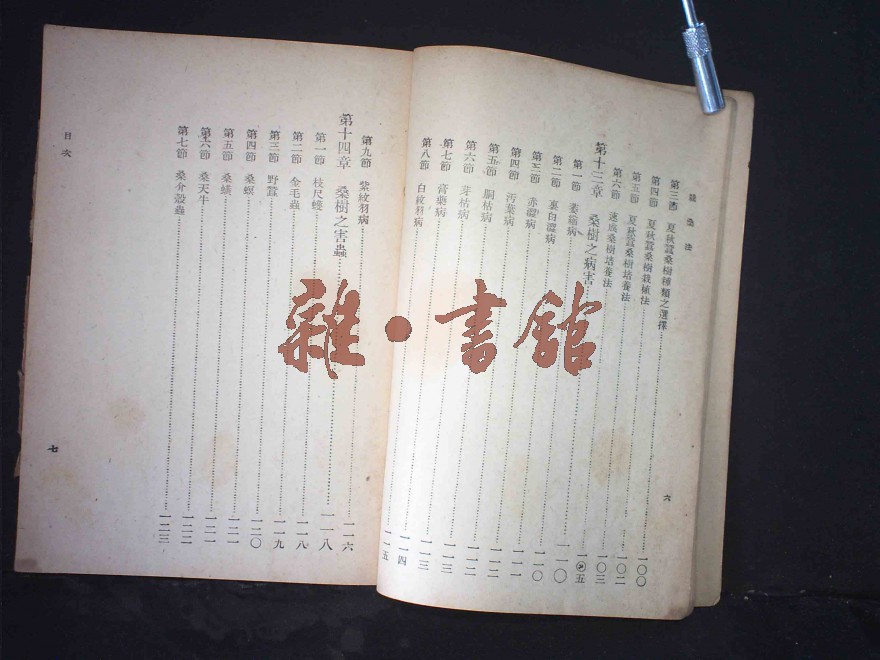 栽桑法
第三節 夏秋蠶桑樹種類之選擇……一〇〇
第四節 夏秋蠶桑樹栽植法……一〇二
第五節 夏秋蠶桑樹培養法……一〇三
第六節 速成桑樹培養法……一〇五
第十三章 桑樹之病害……一一〇
第一節 萎縮病……一一〇
第二節 裏白澀病……一一一
第三節 赤澀病……一一二
第四節 污葉病……一一二
第五節 胴枯病……一一二
第六節 芽枯病……一一三
第七節 膏藥病……一一四
第八節 白紋羽病……一一五
六
第九節 紫紋羽病……一一六
第十四章 桑樹之害蟲……一一八
第一節 枝尺蠖……一一八
第二節 金毛蟲……一一九
第三節 野蠶……一二〇
第四節 桑螟……一二一
第五節 桑蟥……一二一
第六節 桑天牛……一二二
第七節 桑介殼蟲……一二三
目次
七
雜·書館